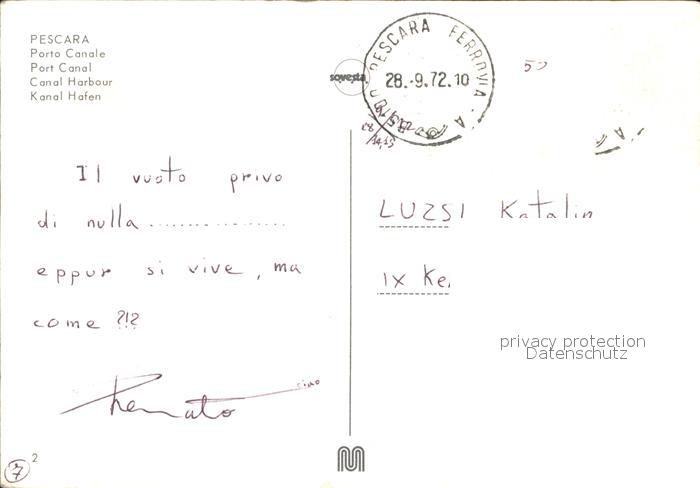 PESCARA
Porto Canale
Port Canal
Canal Harbour
Kanal Hafen
sovesta
PESCARA FERROVIA
28.-9.72.10
50
Il vuoto privo
di nulla..................
eppur si vive, ma
come ?!?
ciao
Renato
LUZSI Katalin
IX Ke.
privacy protection
Datenschutz
7
2